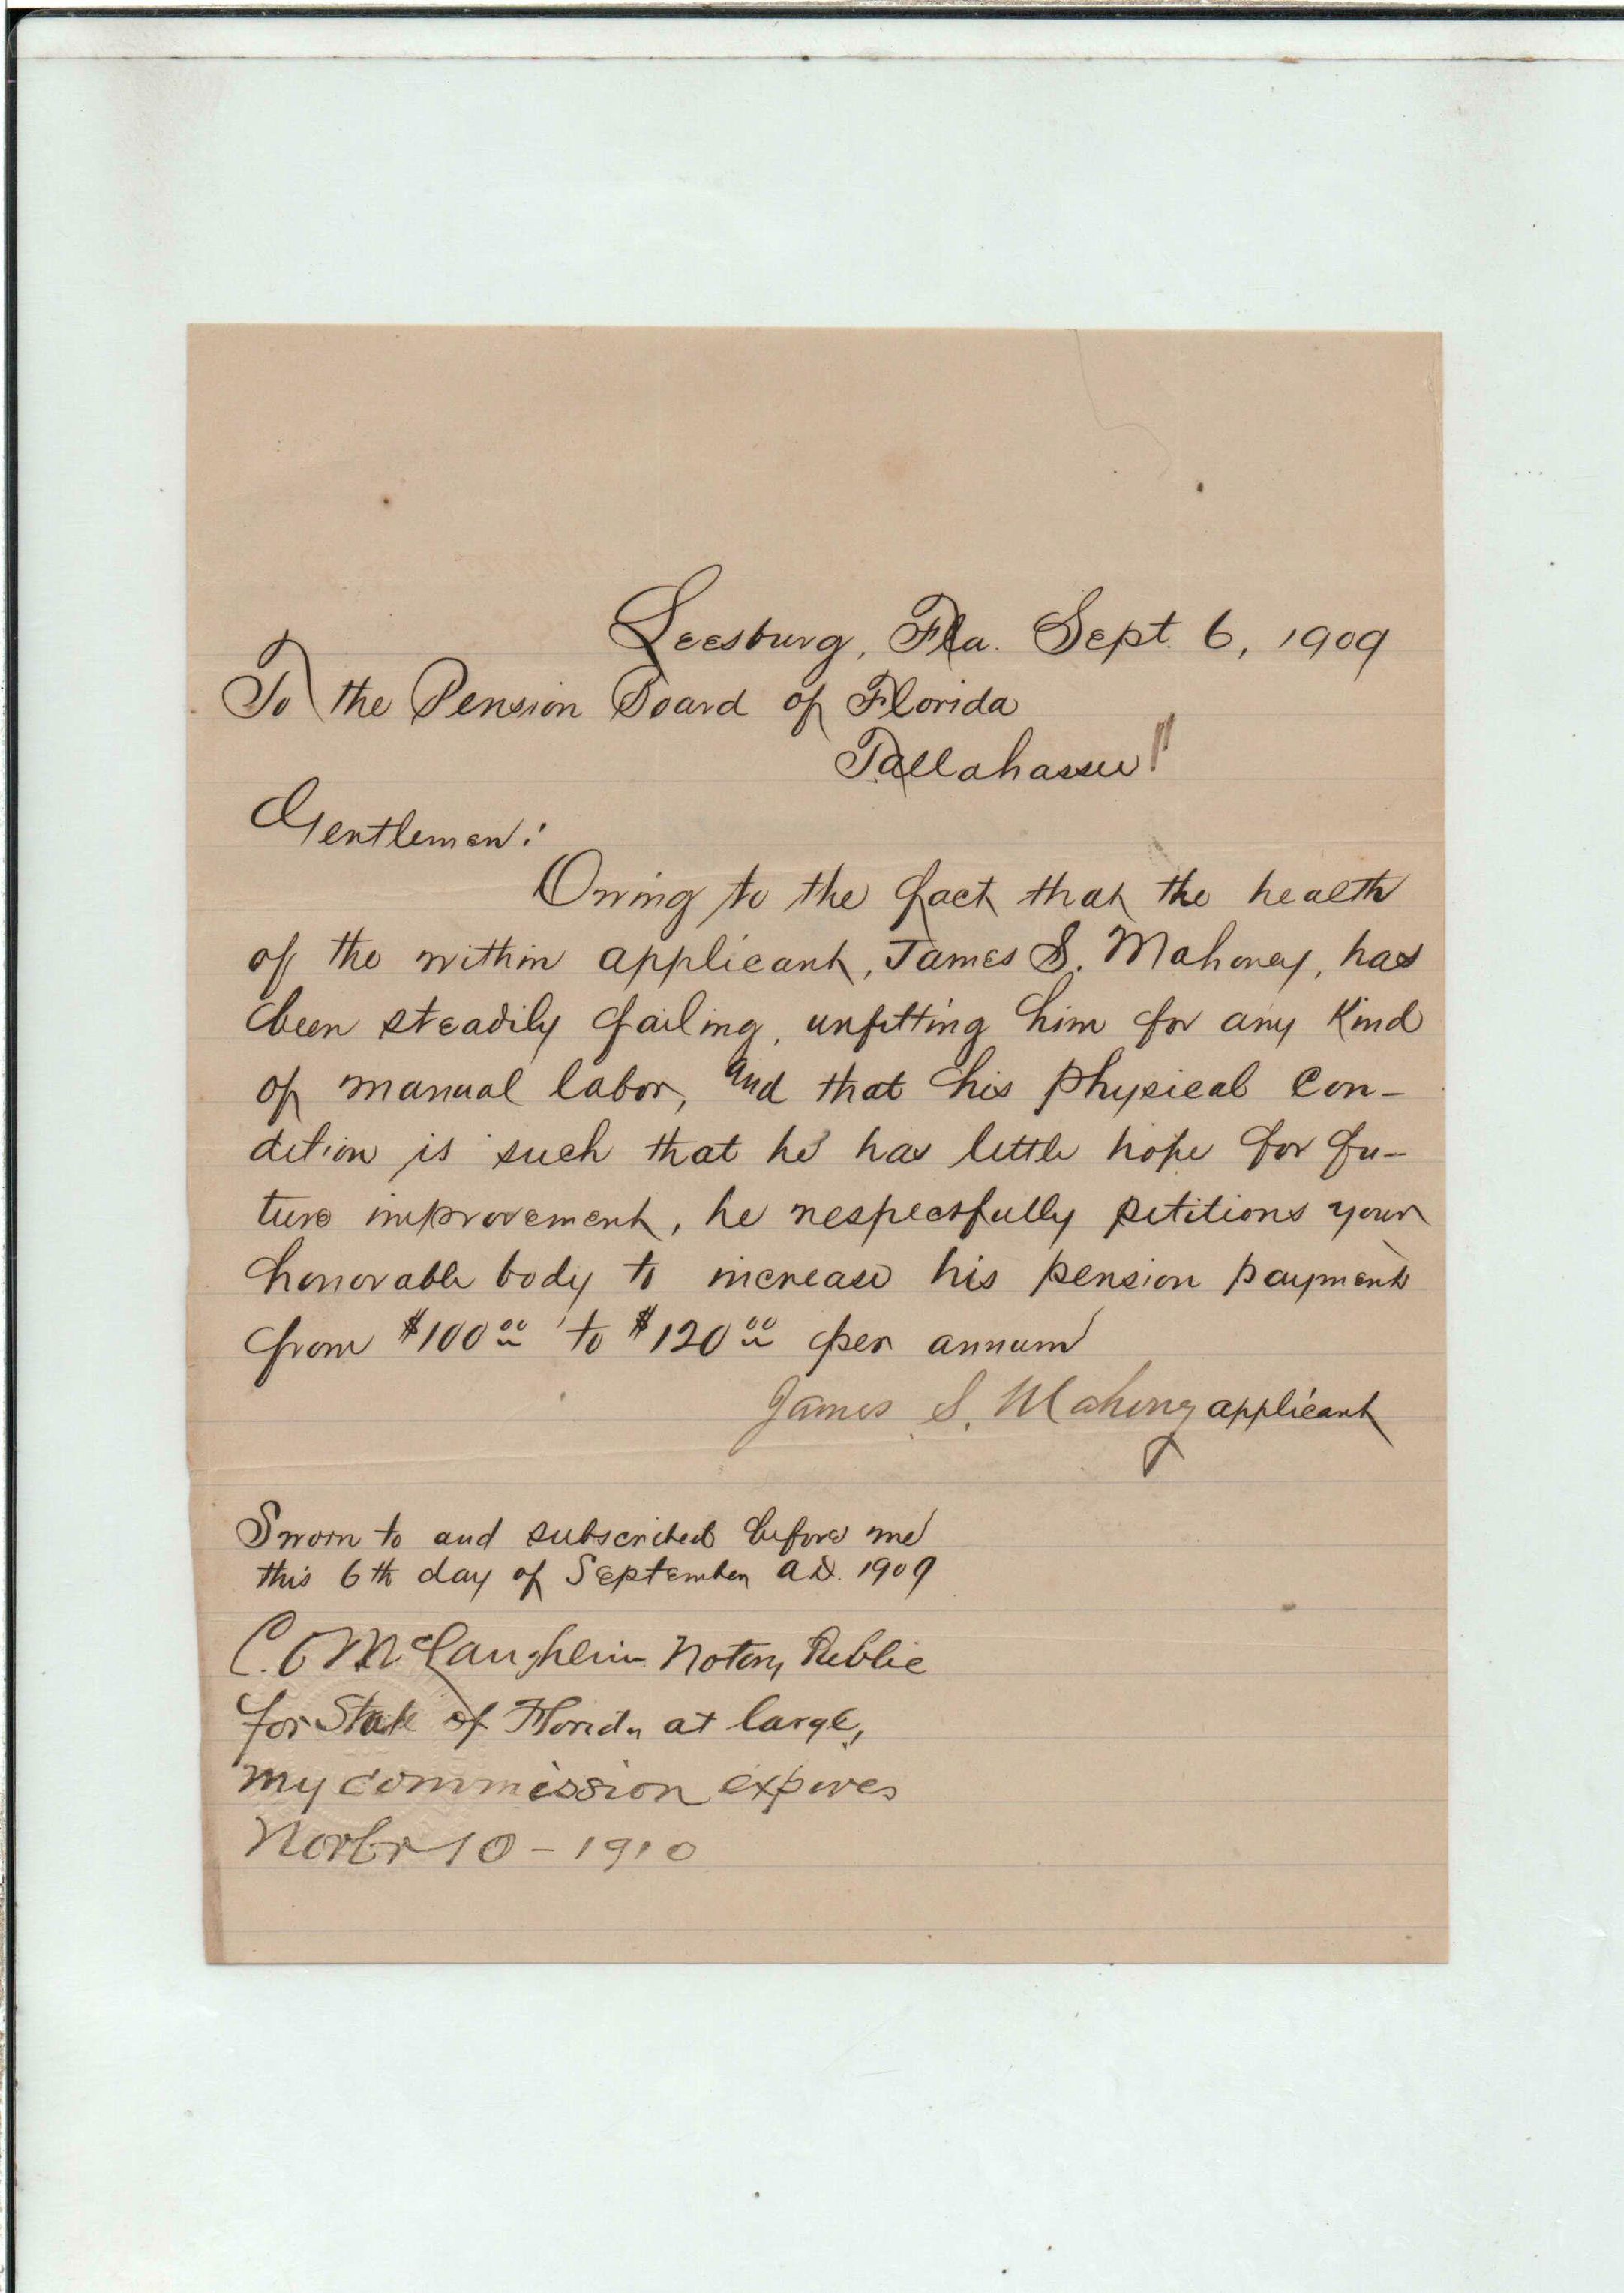 Leesburg, Fla. Sept. 6, 1909
To the Pension Board of Florida
Tallahassee
Gentlemen:
Owing to the fact that the health
of the within applicant, James S. Mahoney, has
been steadily failing, unfitting him for any kind
of manual labor, and that his physical con-
dition is such that he has little hope for fu-
ture improvement, he respectfully petitions your
honorable body to increase his pension payment
from $100.00 to $120.00 per annum
James S. Mahoney applicant
Sworn to and subscribed before me
this 6th day of September A.D. 1909
C. C. McLaughlin Notary Public
for State of Florida at large,
my commission expires
Novbr 10 - 1910